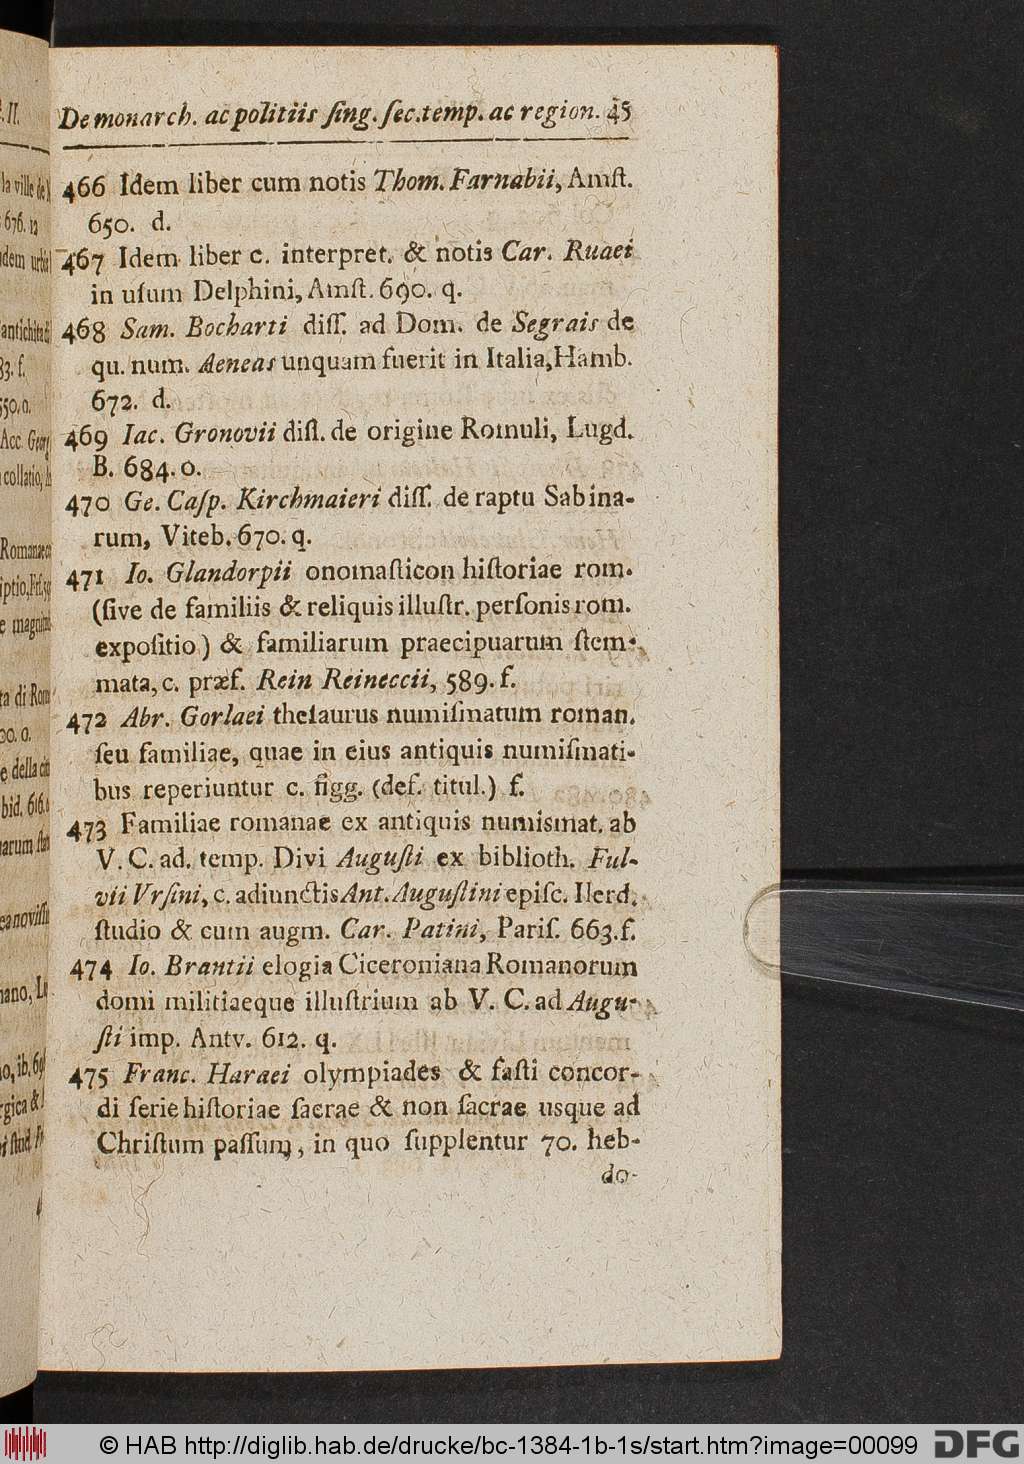 De monarch. ac politiis ſing. ſec. temp. ac region. 45
466 Idem liber cum notis Thom. Farnabii, Amſt.
650. d.
467 Idem liber c. interpret. & notis Car. Ruaei
in uſum Delphini, Amſt. 690. q.
468 Sam. Bocharti diſſ. ad Dom. de Segrais de
qu. num. Aeneas unquam fuerit in Italia, Hamb.
672. d.
469 Iac. Gronovii diſſ. de origine Romuli, Lugd.
B. 684. o.
470 Ge. Caſp. Kirchmaieri diſſ. de raptu Sabina-
rum, Viteb. 670. q.
471 Io. Glandorpii onomaſticon hiſtoriae rom.
(ſive de familiis & reliquis illuſtr. perſonis rom.
expoſitio) & familiarum praecipuarum ſtem-
mata, c. præf. Rein Reineccii, 589. f.
472 Abr. Gorlaei theſaurus numiſmatum roman.
ſeu familiae, quae in eius antiquis numiſmati-
bus reperiuntur c. figg. (def. titul.) f.
473 Familiae romanae ex antiquis numismat. ab
V. C. ad. temp. Divi Auguſti ex biblioth. Ful-
vii Vrſini, c. adiunctis Ant. Auguſtini epiſc. Ilerd.
ſtudio & cum augm. Car. Patini, Pariſ. 663. f.
474 Io. Brantii elogia Ciceroniana Romanorum
domi militiaeque illuſtrium ab V. C. ad Augu-
ſti imp. Antv. 612. q.
475 Franc. Haraei olympiades & faſti concor-
di ſerie hiſtoriae ſacrae & non ſacrae usque ad
Chriſtum paſſum, in quo ſupplentur 70. heb-
do-
© HAB http://diglib.hab.de/drucke/bc-1384-1b-1s/start.htm?image=00099
DFG